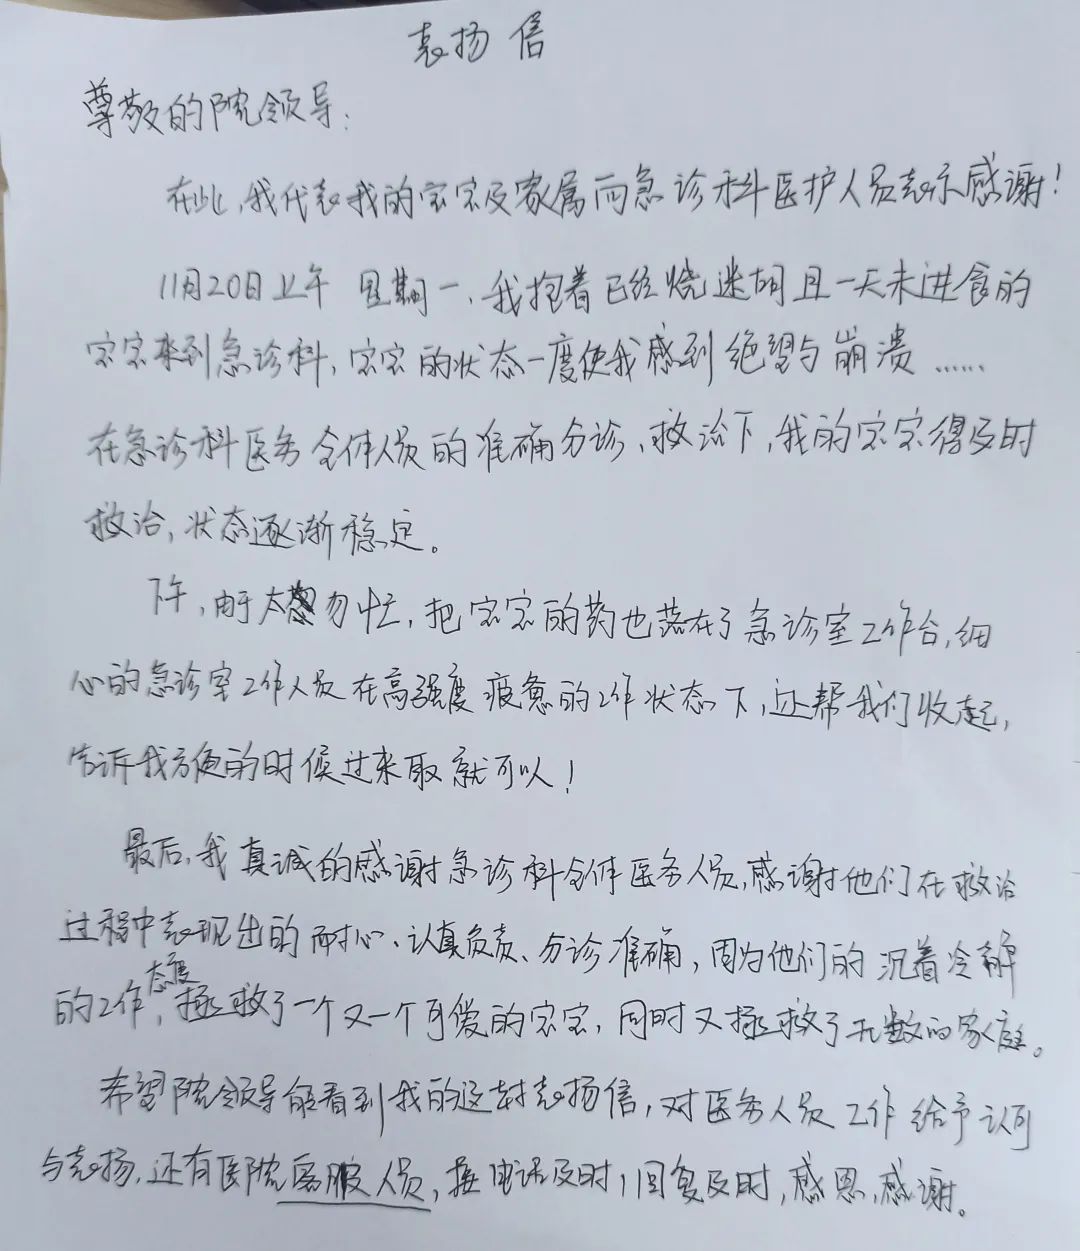 表扬信
尊敬的院领导:
在此,我代表我的宝宝及家属向急诊科医护人员表示感谢!
11月20日上午 星期一,我抱着已经烧迷胡且一天未进食的
宝宝来到急诊科,宝宝的状态一度使我感到绝望与崩溃……
在急诊科医务全体人员的准确分诊、救治下,我的宝宝得及时
救治,状态逐渐稳定。
下午,由于太匆忙,把宝宝的药也落在了急诊室工作台,细
心的急诊室工作人员在高强度疲惫的工作状态下,还帮我们收起,
告诉我方便的时候过来取就可以!
最后,我真诚的感谢急诊科全体医务人员,感谢他们在救治
过程中表现出的耐心、认真负责、分诊准确,因为他们的沉着冷静
的工作态度,拯救了一个又一个可爱的宝宝,同时又拯救了无数的家庭。
希望院领导能看到我的这封表扬信,对医务人员工作给予认可
与表扬,还有医院客服人员,接电话及时,回复及时,感恩,感谢。